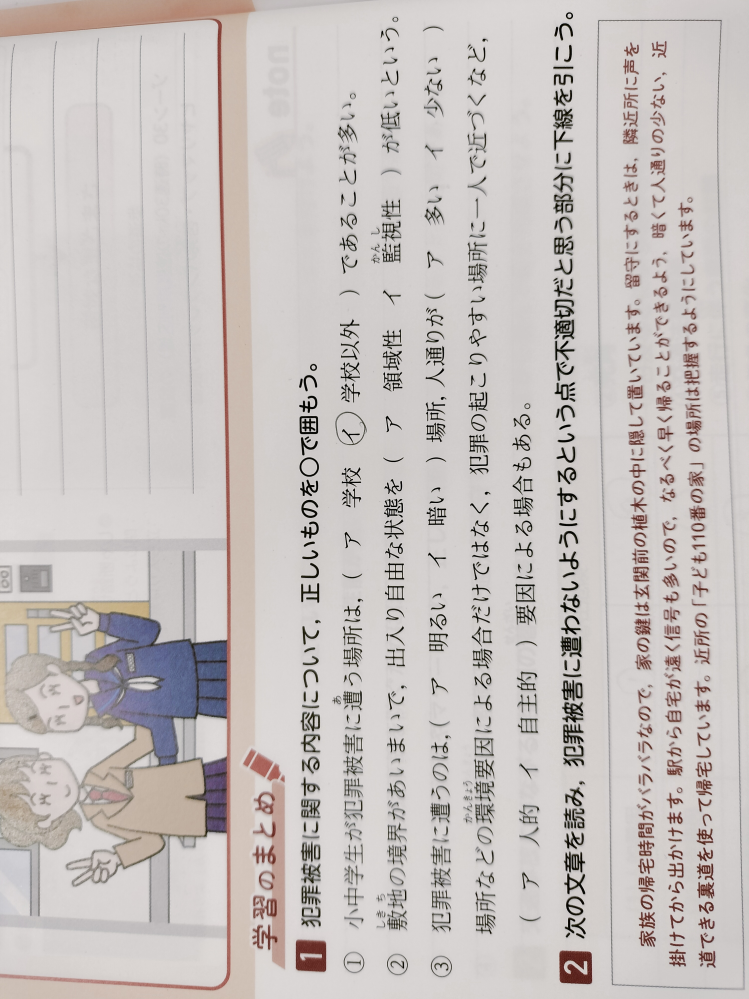 学習のまとめ
1 犯罪被害に関する内容について，正しいものを○で囲もう。
① 小中学生が犯罪被害に遭う場所は，（ ア 学校 イ 学校以外 ）であることが多い。
② 敷地の境界があいまいで，出入り自由な状態を（ ア 領域性 イ 監視性 ）が低いという。
③ 犯罪被害に遭うのは，（ ア 明るい イ 暗い ）場所，人通りが（ ア 多い イ 少ない ）
場所などの環境要因による場合だけではなく，犯罪の起こりやすい場所に一人で近づくなど，
（ ア 人的 イ 自主的 ）要因による場合もある。
2 次の文章を読み，犯罪被害に遭わないようにするという点で不適切だと思う部分に下線を引こう。
家族の帰宅時間がバラバラなので，家の鍵は玄関前の植木の中に隠して置いています。留守にするときは，隣近所に声を
掛けてから出かけます。駅から自宅が遠く信号も多いので，なるべく早く帰ることができるよう，暗くて人通りの少ない，近
道できる裏道を使って帰宅しています。近所の「子ども110番の家」の場所は把握するようにしています。